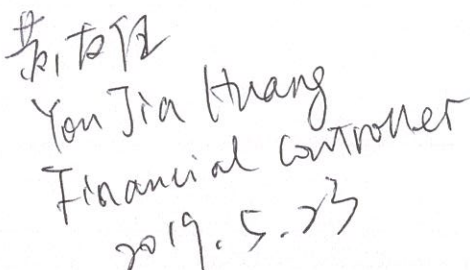 黄友佳
You Jia Huang
Financial Controller
2019.5.23